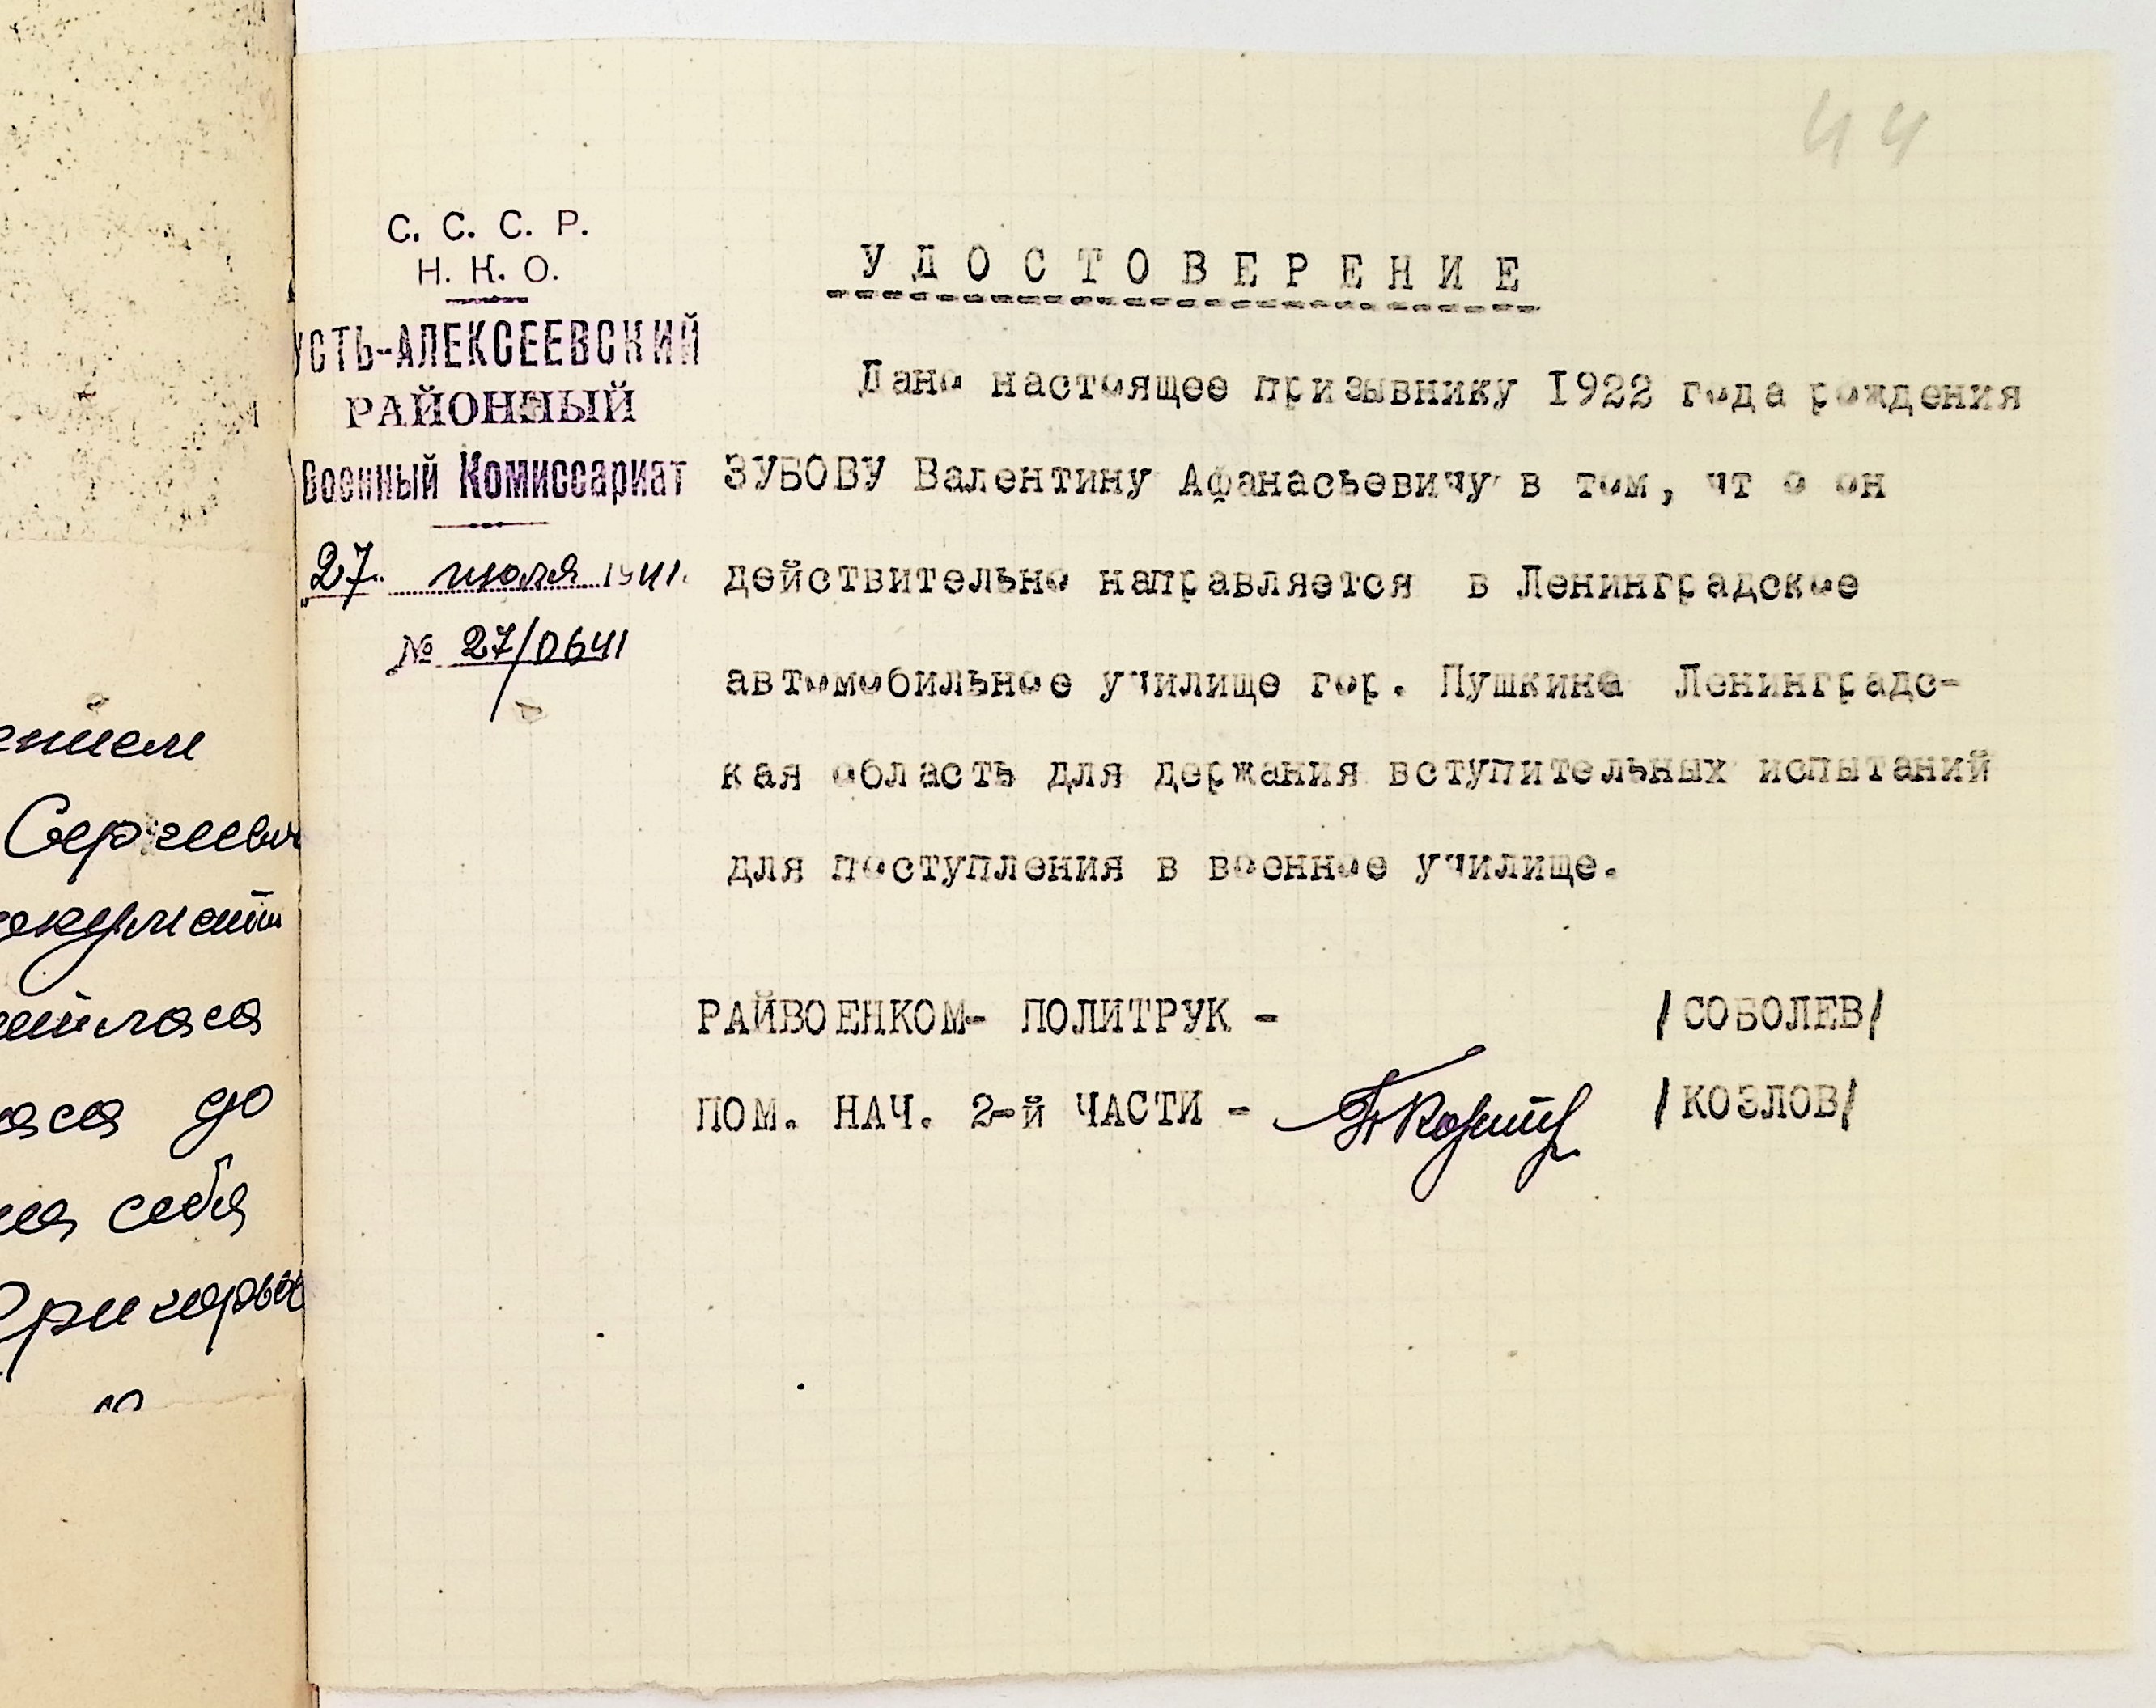 44
С. С. С. Р.
Н. К. О.
УСТЬ-АЛЕКСЕЕВСКИЙ
РАЙОННЫЙ
Военный Комиссариат
27. июля 1941.
№ 27/0641
УДОСТОВЕРЕНИЕ
Дано настоящее призывнику 1922 года рождения
ЗУБОВУ Валентину Афанасьевичу в том, чт о он
действительно направляется в Ленинградское
автомобильное училище гор. Пушкина Ленинградс-
кая область для держания вступительных испытаний
для поступления в военное училище.
РАЙВОЕНКОМ- ПОЛИТРУК - /СОБОЛЕВ/
ПОМ. НАЧ. 2-й ЧАСТИ - /КОЗЛОВ/
Сергеевич
до
себя